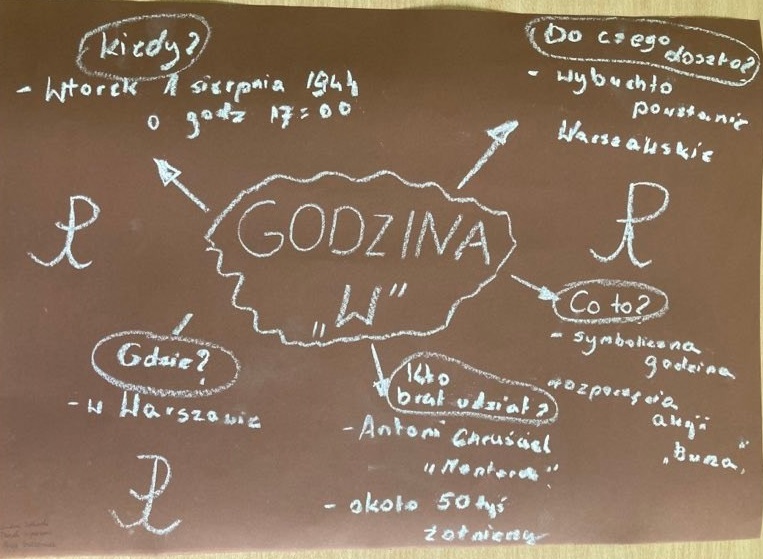 kiedy?
- Wtorek 1 sierpnia 1944
o godz 17:00
Do czego
doszło?
- wybuchło
powstanie
Warszawskie
GODZINA
„W"
Co to?
- symboliczna
godzina
rozpoczęcia
akcji
„Burza"
Gdzie?
- w Warszawie
Kto
brał udział?
- Antoni Chruściel
„Monter"
- około 50 tyś
żołnierzy